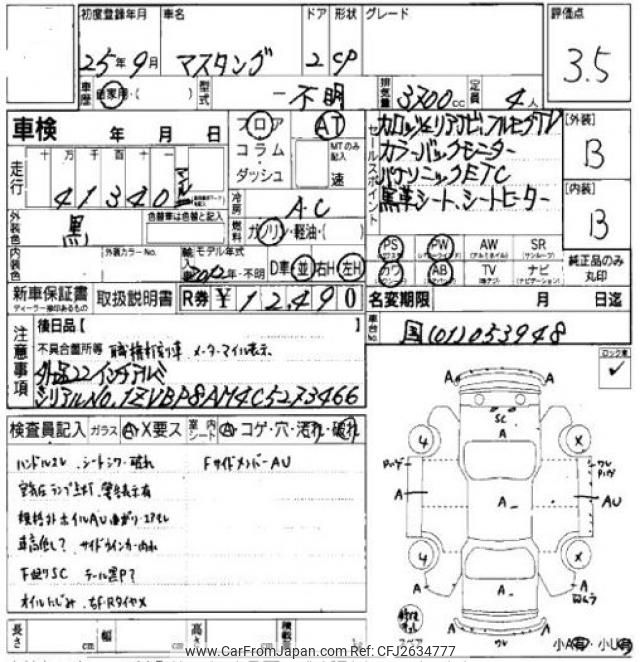 初度登録年月 車名 ドア 形状 グレード 評価点
25年9月 マスタング 2 CP 3.5
車歴 自家用・( ) 型式 一不明 排気量 3700cc 定員 4人
車検 年 月 日 フロア AT セールスポイント [外装]
コラム MTのみ記入 カラーバックモニター B
ダッシュ 速 パナソニックETC
走行 十 万 千 百 十 一 黒革シート、シートヒーター [内装]
41340 冷房 A.C B
外装色 黒 色替車は色替と記入 燃料 ガソリン・軽油・( )
PS PW AW SR 純正品のみ丸印
内装色 外装カラーNo. 輸入車 モデル年式 2012年・不明 D車 並 右H 左H カワ AB TV ナビ
新車保証書 取扱説明書 R券 ¥12,490 名変期限 月 日迄
ディーラー捺印あるもの
注意事項 後日品【 車台No. 国(01)053948
不具合箇所等 職権打刻車 メーターマイル表示、 ロック車
社外22インチアルミ
シリアルNO.1ZVBP8AM4C5273466
検査員記入 ガラス A・X要ス 室内シート A・コゲ・穴・汚れ・破れ
ハンドルスレ、シートシワ・破れ FサイドメンバーAU
空気圧ランプ点灯、警告表示有
規格外ホイルAU
車高低し? サイドウインカー
下廻りSC テール黒P?
オイルにじみ、右F・RタイヤX
A A
SC
A
4 X
A A AU
4 X
A A A
スペア
長さ cm 幅 cm 高さ cm 積載量
小A有・小U有
www.CarFromJapan.com Ref: CFJ2634777